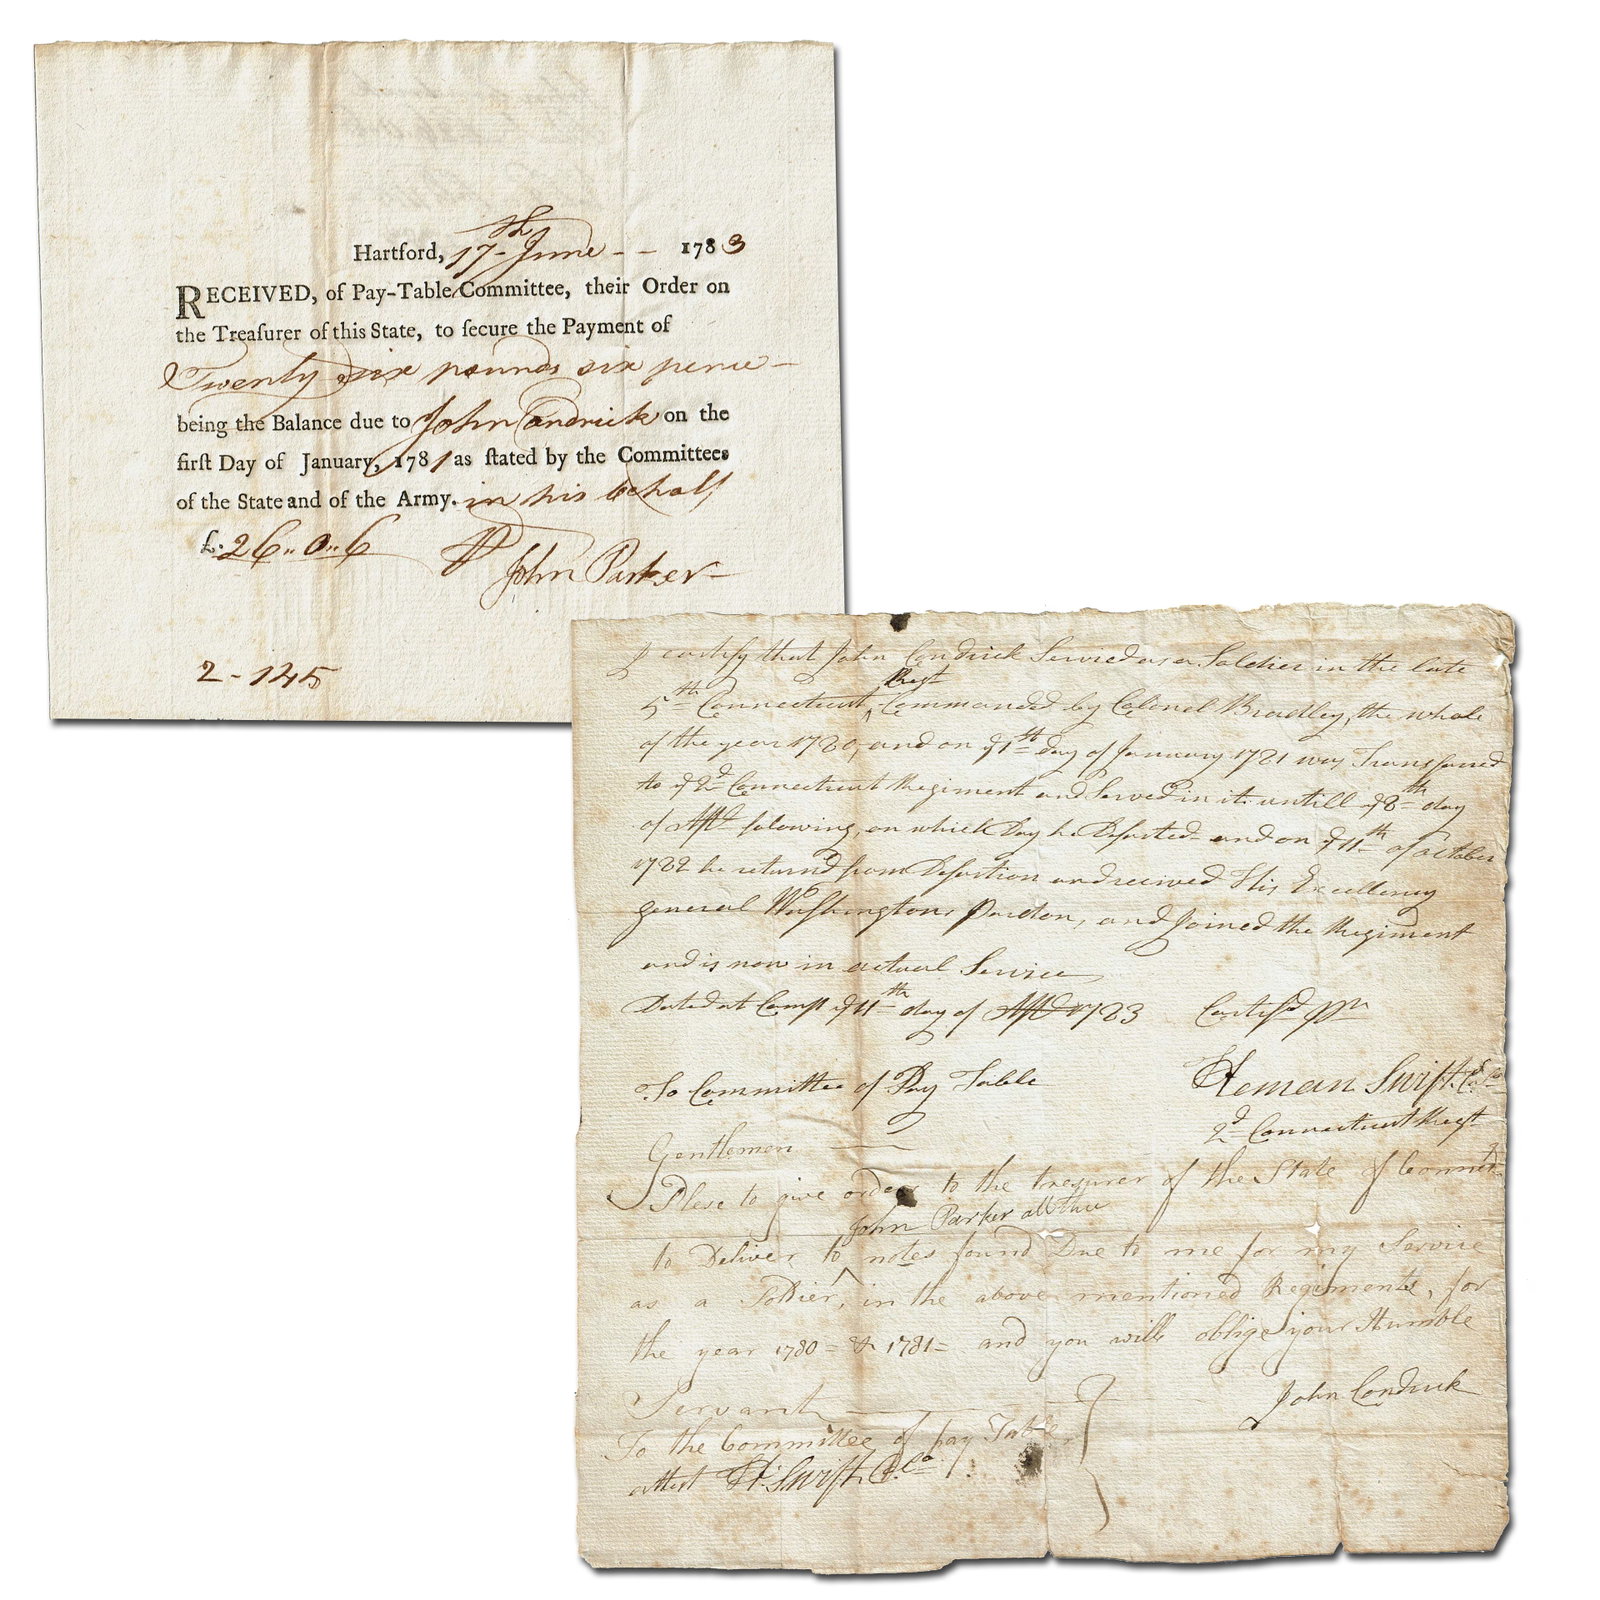 Hartford, 17th June - - 1783
RECEIVED, of Pay-Table Committee, their Order on
the Treaſurer of this State, to ſecure the Payment of
Twenty six pounds six pence -
being the Balance due to John Condrick on the
firſt Day of January, 1781 as ſtated by the Committees
of the State and of the Army. in his behalf
£. 26 .. 0 .. 6
John Parker -
2 - 145
I certify that John Condrick Served as a Soldier in the late
5th Connecticut Regt Commanded by Colonel Bradley, the whole
of the year 1780, and on ye 1st day of January 1781 was Transfared
to ye 2d Connecticut Regiment and Served in it untill ye 8th day
of folowing, on which Day he Desarted and on ye 11th of october
1782 he returnd from Desartion and received His Excellency
general Washingtons Pardon, and Joined the Regiment
and is now in actual Service
Dated at Camp ye 11th day of 1783 Certifd pr
Heman Swift Col
2d Connecticut Regt
To Committee of Pay Table
Gentlemen
Plese to give order to the tresurer of the State of Connect
John Parker all the
to Deliver to ^ notes found Due to me for my Service
as a Soldier, in the above mentioned Regiments, for
the year 1780 = & 1781 = and you will oblige your Humble
Servant John Condrick
To the Committee of pay Table
attest H. Swift Colo